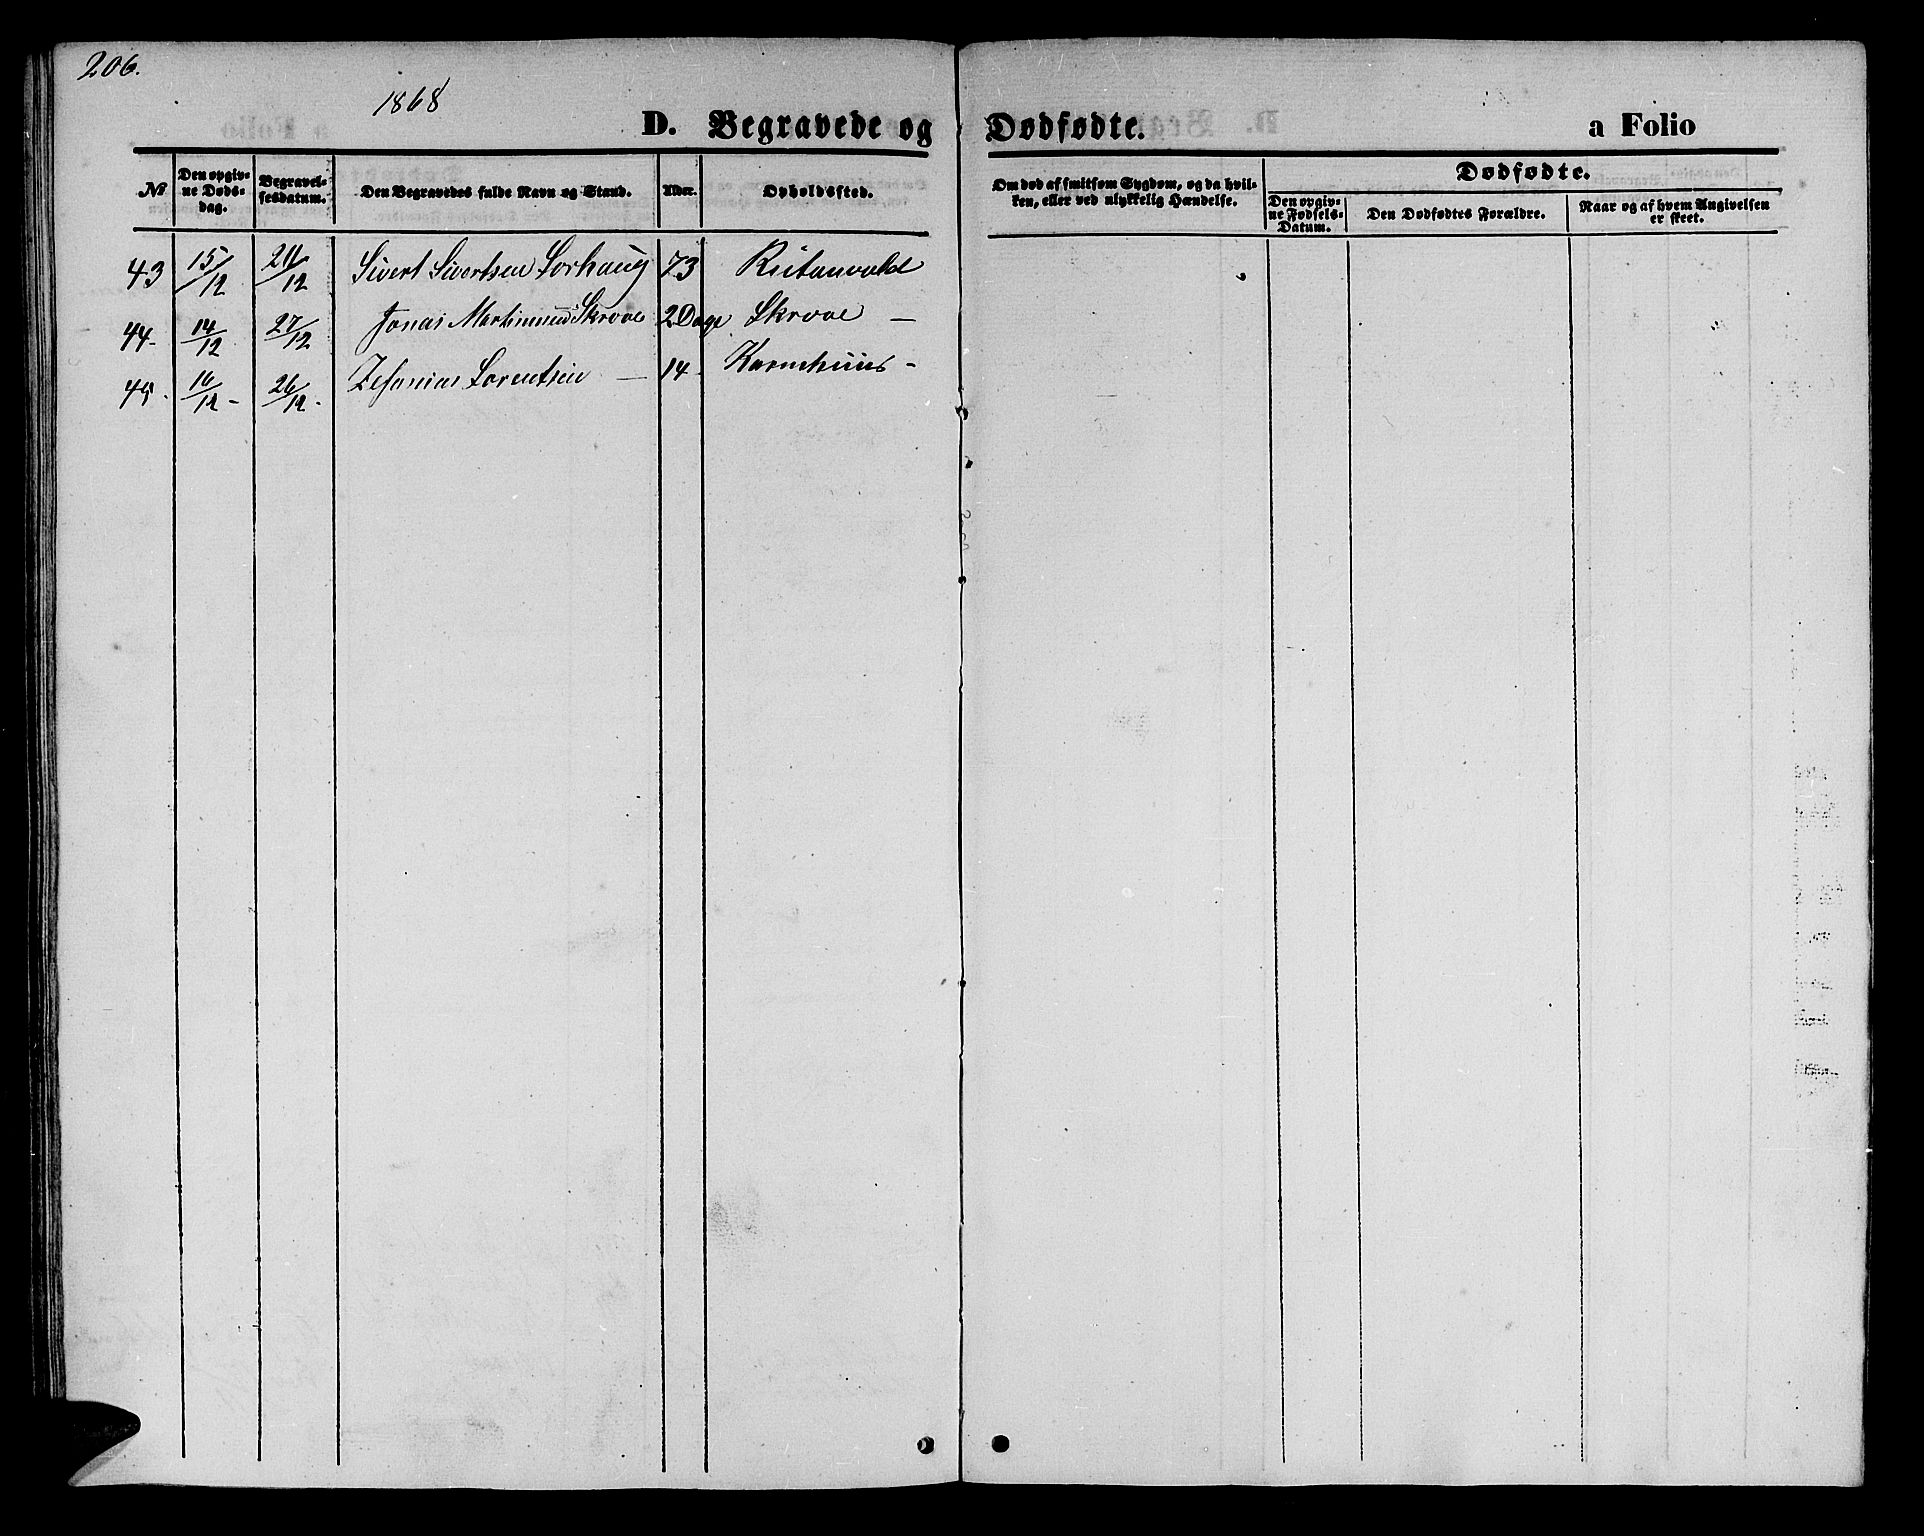 206.
1868
D. Begravede og Dødfødte. a Folio
№ Den opgivne Døds-dag. Begravelsesdatum. Den Begravedes fulde Navn og Stand. Alder. Opholdssted. Om død af smitsom Sygdom, og da hvilken, eller ved ulykkelig Hændelse. Dødfødte.
Den opgivne Fødsels-Datum. Den Dødfødtes Forældre. Naar og af hvem Angivelsen er skeet.
43 15/12 /12 Sivert Sivertsen Sorhaug 73
44- 14/12 27/12 Jonas Skrove 2 Dage Skrove —
45. 16/12 - 26/12 - Zefanias Lorentsen — 14 -